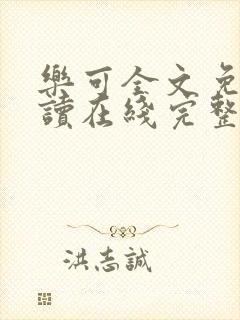 樂可全文免
讀在綫完整
洪志誠